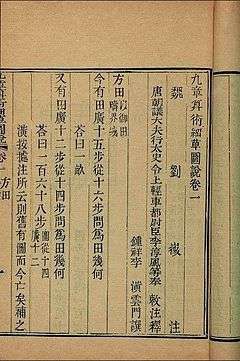 九章算術細草圖說卷一
魏 劉徽 注
唐朝議大夫行太史令上輕車都尉臣李淳風等奉 敕注釋
鍾祥李 潢雲門譔
方田以御田疇界域
今有田廣十五步從十六步問為田幾何
荅曰一畝
又有田廣十二步從十四步問為田幾何
荅曰一百六十八步圖從十四廣十二
潢按據注所云則舊有圖而今亡矣補之
卷一 方田